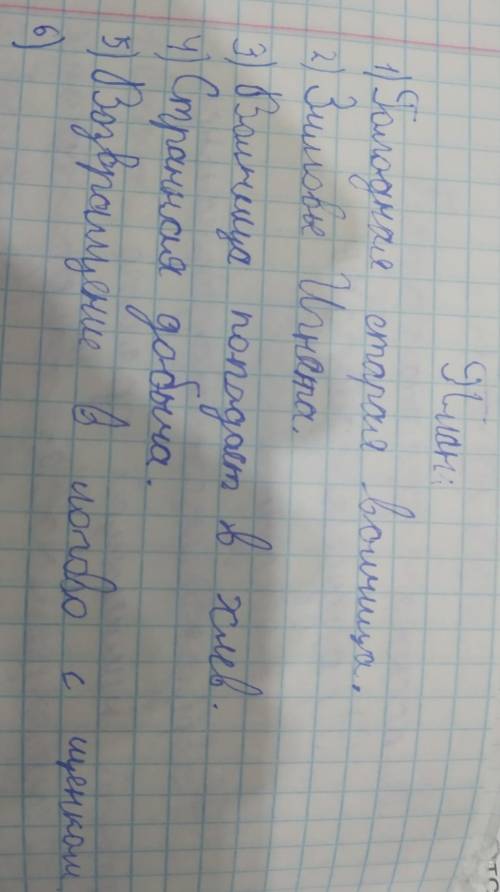 План:
1) Голодная старая волчица.
2) Зимовье Игната.
3) Волчица попадает в хлев.
4) Странная добыча.
5) Возвращение в логово с щенком
6)